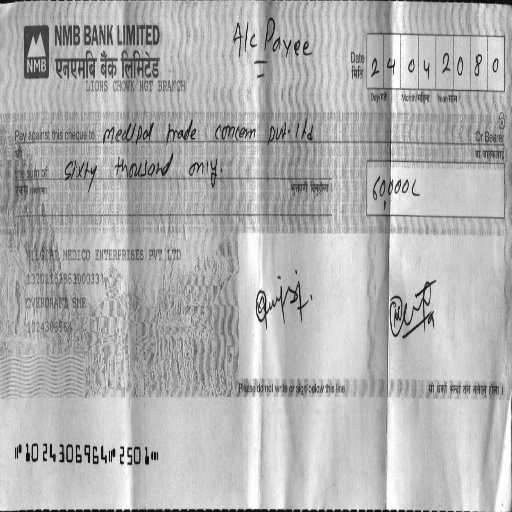 NMB BANK LIMITED
एनएमबि बैंक लिमिटेड
LIONS CHOWK NGT BRANCH
A/c Payee
Date
मिति
2 4 0 4 2 0 8 0
Day/गते Month/महिना Year/साल
Pay against this cheque to medipal trade concern pvt. ltd
Or Bearer
वा वाहकलाई
the sum of sixty thousand only.
60,000/-
NMB
MEDICO ENTERPRISES PVT LTD
OVERDRAFT SME
1024306964
Please do not write or sign below this line
⑈1024306964⑈2501⑈